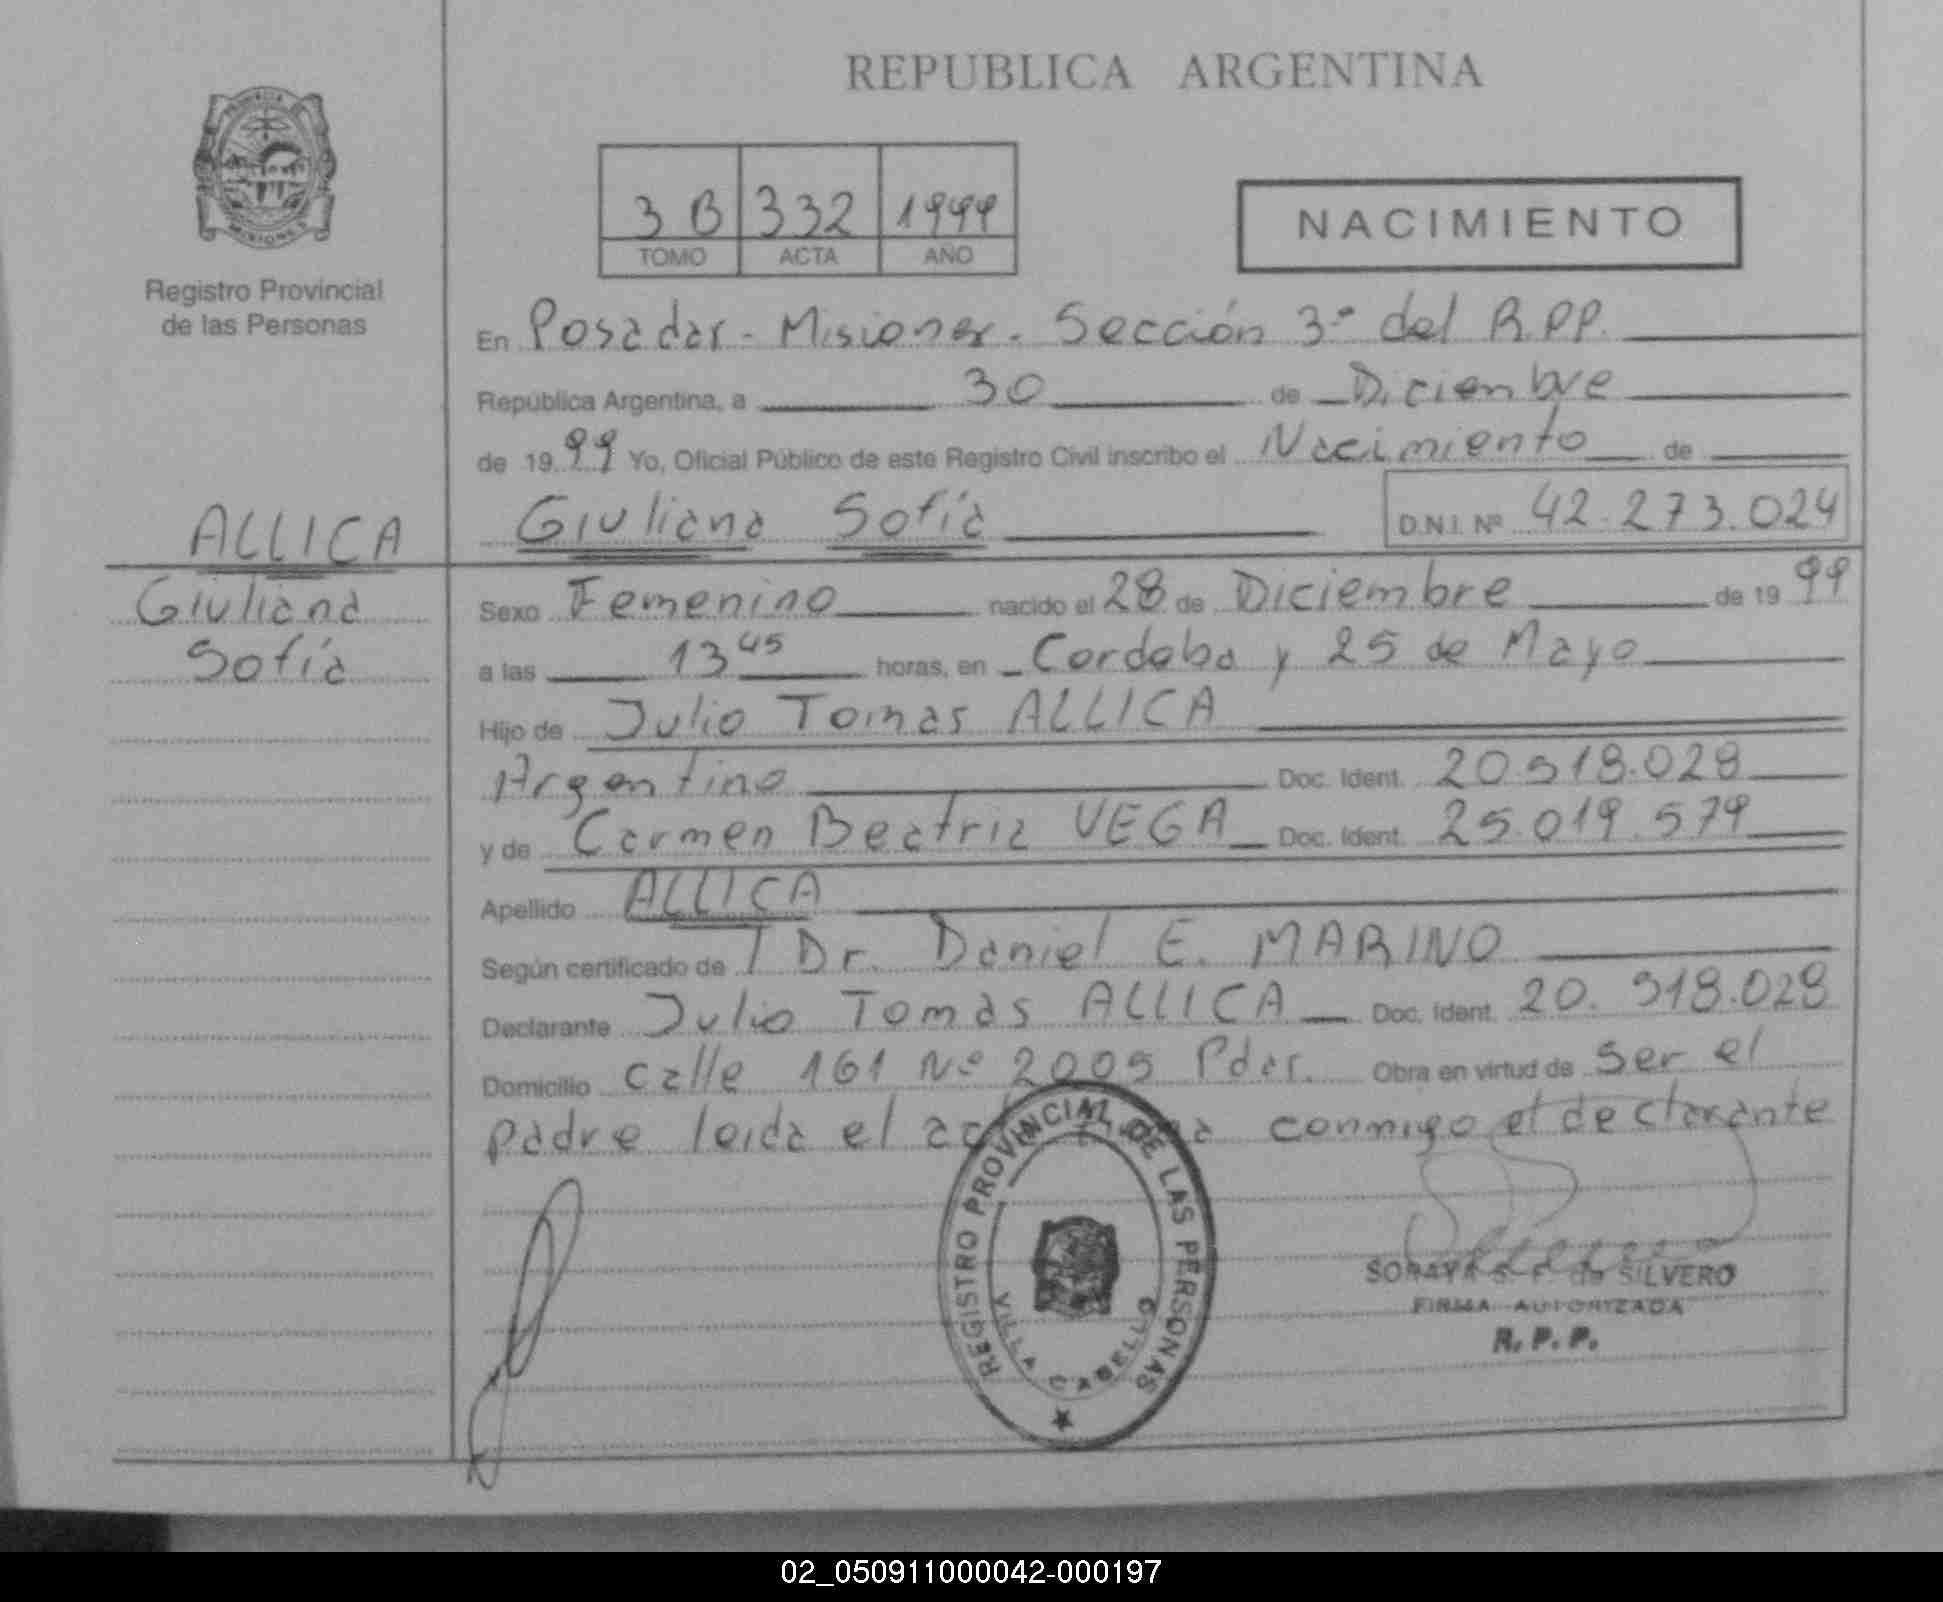 REPUBLICA ARGENTINA
PROVINCIA
MISIONES
Registro Provincial
de las Personas
3 B 332 1999
TOMO ACTA AÑO
NACIMIENTO
En Posadas - Misiones - Sección 3ª del R.P.P.
República Argentina, a 30 de Diciembre
de 1999 Yo, Oficial Público de este Registro Civil inscribo el Nacimiento de
Giuliana Sofía D.N.I. Nº 42.273.024
ALLICA
Giuliana
Sofía
Sexo Femenino nacido el 28 de Diciembre de 1999
a las 13 45 horas, en Cordoba y 25 de Mayo
Hijo de Julio Tomas ALLICA
Argentino Doc. Ident. 20.518.028
y de Carmen Beatriz VEGA Doc. Ident. 25.019.579
Apellido ALLICA
Según certificado de Dr. Daniel E. MARINO
Declarante Julio Tomas ALLICA Doc. Ident. 20.518.028
Domicilio calle 161 Nº 2005 Pdas. Obra en virtud de ser el
padre leida el conmigo el declarante
REGISTRO PROVINCIAL DE LAS PERSONAS
VILLA CABELLO
SORAYA S. F. de SILVERO
FIRMA AUTORIZADA
R.P.P.
02_050911000042-000197